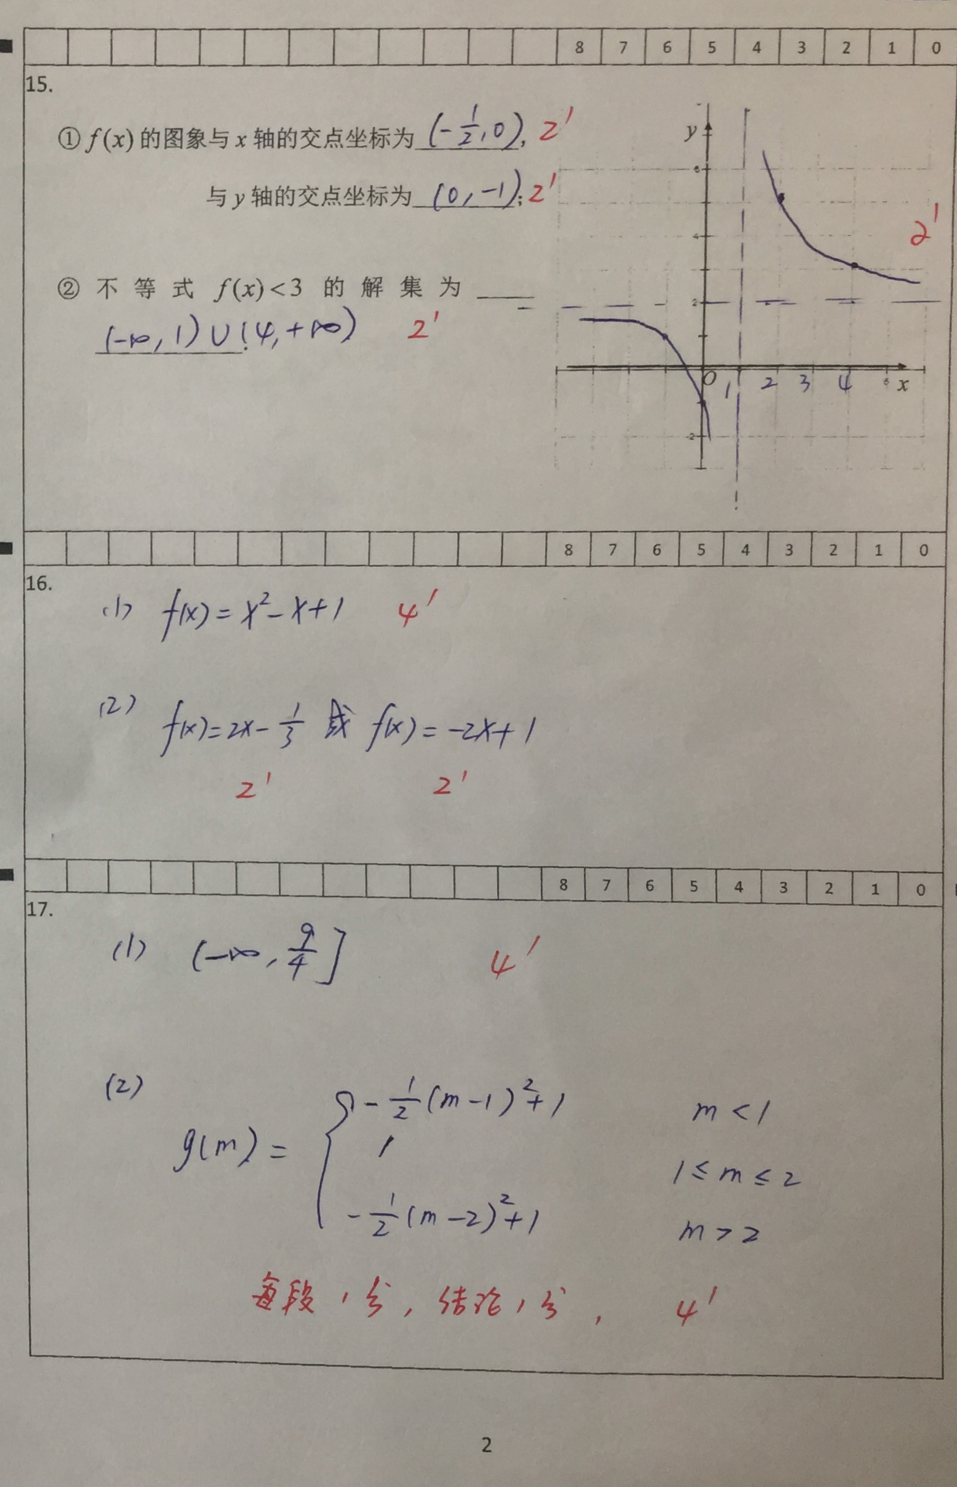 8 7 6 5 4 3 2 1 0
15.
① f(x) 的图象与 x 轴的交点坐标为 (-1/2, 0), 2'
与 y 轴的交点坐标为 (0, -1); 2'
② 不等式 f(x)<3 的解集为
(-∞, 1) ∪ (4, +∞). 2'
y
2'
2
O 1 2 3 4 x
-2
8 7 6 5 4 3 2 1 0
16.
(1) f(x) = x² - x + 1 4'
(2) f(x) = 2x - 1/3 或 f(x) = -2x + 1
2' 2'
8 7 6 5 4 3 2 1 0
17.
(1) (-∞, 9/4] 4'
(2)
-1/2 (m-1)² + 1 m < 1
g(m) = { 1 1 ≤ m ≤ 2
-1/2 (m-2)² + 1 m > 2
每段1分, 结论1分, 4'
2